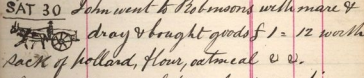 SAT 30 John went to Robinsons with mare &
dray & bought goods £1=12 worth
sack of pollard, flour, oatmeal &c.